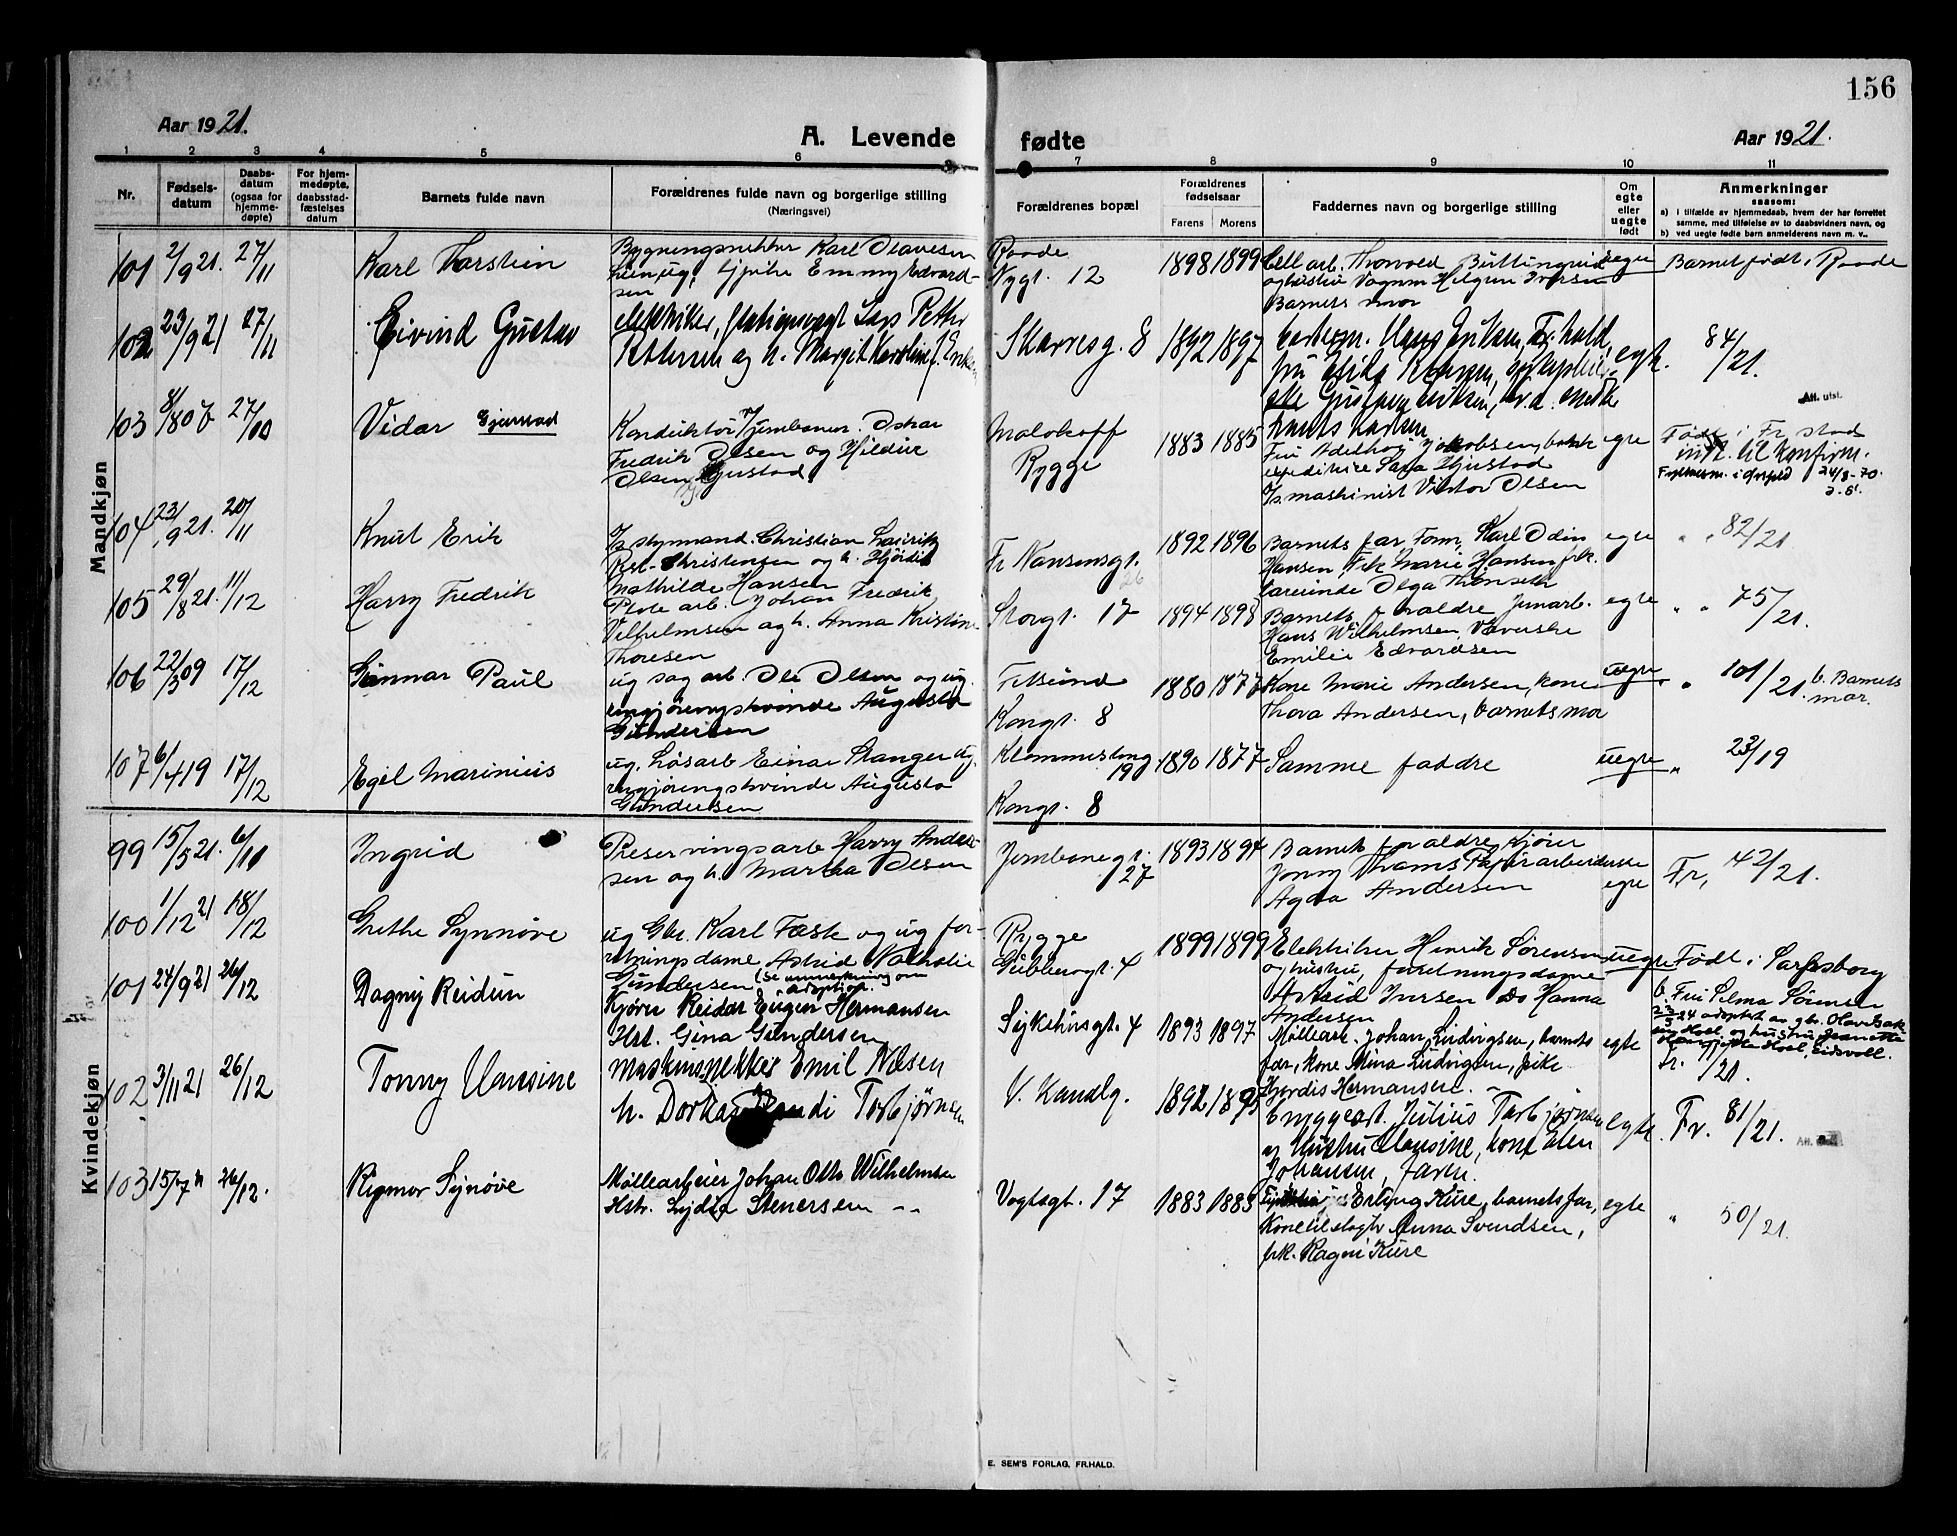 156
Aar 1921.
A. Levende fødte
Aar 1921.
1 2 3 4 5 6 7 8 9 10 11
Nr.
Fødsels-
datum
Daabs-
datum
(ogsaa for
hjemme-
døpte)
For hjem-
medøpte,
daabsstad-
fæstelses
datum
Barnets fulde navn
Forældrenes fulde navn og borgerlige stilling
(Næringsvei)
Forældrenes bopæl
Forældrenes
fødselsaar
Farens Morens
Faddernes navn og borgerlige stilling
Om
egte
eller
uegte
født
Anmerkninger
saasom:
a) i tilfælde av hjemmedaab, hvem der har forrettet
samme, med tilføielse av to daabsvidners navn, og
b) ved uegte født barn anmelderens navn m. v.
Mandkjøn
101 2/9 21. 27/11 Karl Torstein
Bygningssnekker Karl Olavesen
Emmy Edvard-
sen
Raade
Nygt. 12
1898 1899
Cell. arb. Thorvald
Barnets mor
uegte
Barnet født i Raade
102 23/9 21 27/11 Eivind Gustav
elektriker, Lars Petter
Pettersen og h. Margit Karoline
Skarresg. 8
1892 1897
Hans Eriksen, Fr.hald,
egte.
84/21.
Att. utst.
103 8/8 07 27/10 Vidar Gjenstad
Konduktør v/Jernbanen. Oskar
Fredrik Olsen og Hildur
Olsen Gjustad
Malakoff
Rygge
1883 1885
Fru Jakobsen,
maskinist Viktor Olsen
egte
Født i Fr.stad
indt. til konfirm.
24/8-70.
104 23/9 21. 20/11 Knut Erik
styrmand. Christian
Christensen og h. Hjørdis
Mathilde Hansen
Fr Nansensgt.
26
1892 1896
Barnets far Form. Karl Odin
Hansen, Frk Marie Hansen frk.
Olga
egte
" " 82/21
105 29/8 21. 11/12 Harry Fredrik
Plate arb. Johan Fredrik
Vilhelmsen og h. Anna Kristine
Thoresen
Storgt. 17
1894 1898
Barnets foraldre Jernarb.
Hans Wilhelmsen, Væverske
Emilie Edvardsen
egte
" " 75/21.
106 22/3 09 17/12 Gunnar Paul
ug sag arb. Ole Olsen og ug.
rengjøringskvinde Augusta
Gundersen
Fetsund
Kongt. 8
1880 1877
Kone Marie Andersen, kone
Thora Andersen, barnets mor
uegte
" 101/21. b. Barnets
mor.
107 6/4 19 17/12 Egil Marinius
ug. Løsarb Einar Stanger ug.
rengjøringskvinde Augusta
Gundersen
19
Kongt. 8
1890 1877
Samme faddre
uegte
" 23/19
Kvindekjøn
99 15/5 21. 6/11 Ingrid
Preservingsarb Harry Ander-
sen og h. Martha Olsen
Jernbanegt.
27
1893 1894
Barnets foraldre, kjører
Jonny Thoms Papirarbeiderske
Agda Andersen
egte
Fr, 42/21.
100 1/12 21 18/12 Grethe Synnøve
ug Gbr. Karl Fæste og ug for-
retningsdame Astrid Nathalie
Gundersen
Rygge
Gubbergt. 4
1899 1899
Elektriker Henrik Sørensen
og hustru, forretningsdame
Astrid Iversen Do Hanna
Andersen
uegte
Født i Sarpsborg
b. Fru Selma Sørensen
101 24/9 21 26/12 Dagny Reidun
(se anmerkning om
adoption.
Kjører Reidar Eugen Hermansen
Hst. Gina Gundersen
Sykehusgt. 4
1893 1897
Møllearb. Johan Ludvigsen, barnets
far, kone Mina Ludvigsen, pike
Hjordis Hermansen.
egte
24 adoptert av gbr. Olav
Hoel, og hustru Jeanette
Hoel, Eidsvoll.
Fr. 71/21.
102 3/11 21 26/12 Tonny Hansine
Maskinsnekker Emil Nilsen
h. Dorthea Randi Torbjørnsen
V. Kanalg.
1892 1895
Byggearb. Julius Torbjørnsen
og hustru Hansine, kone Elen
Johansen, faren.
egte.
Fr. 81/21.
103 15/7 21 26/12. Rigmor Synøve
Møllearbeider Johan Otto Wilhelmsen
Hstr. Lydia Stenersen
Vogtsgt. 17
1883 1883
Erling Kure, barnets far,
Anna Svendsen,
frk. Ragni Kure
egte
" 50/21.
E. SEM'S FORLAG, FR.HALD.